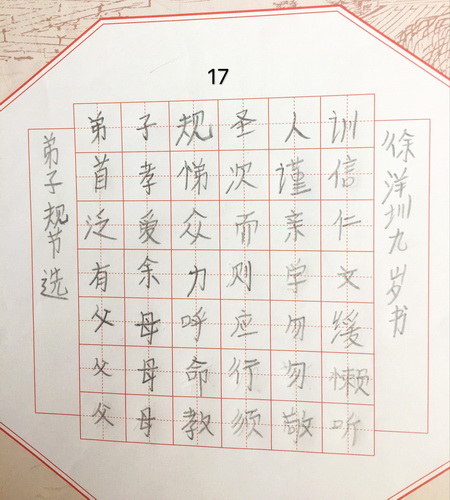 17
弟子规节选
弟子规圣人训
首孝悌次谨信
泛爱众而亲仁
有余力则学文
父母呼应勿缓
父母命行勿懒
父母教须敬听
徐洋圳九岁书